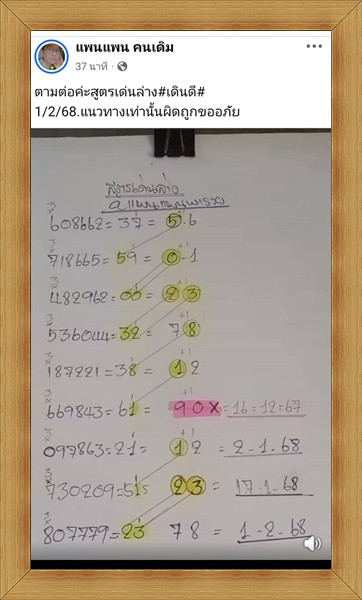 แพนแพน คนเดิม
37 นาที ·
ตามต่อค่ะสูตรเด่นล่าง#เดินดี#
1/2/68.แนวทางเท่านั้นผิดถูกขออภัย
สูตรเด่นล่าง
608662 = 37 = 5.6
718665 = 59 = 0-1
482962 = 00 = 23
536044 = 32 = 78
187221 = 38 = 12
669843 = 61 = 90X = 16=12=67
097863 = 21 = 12 = 2-1-68
730209 = 51 = 23 = 17-1-68
807779 = 23 78 = 1-2-68